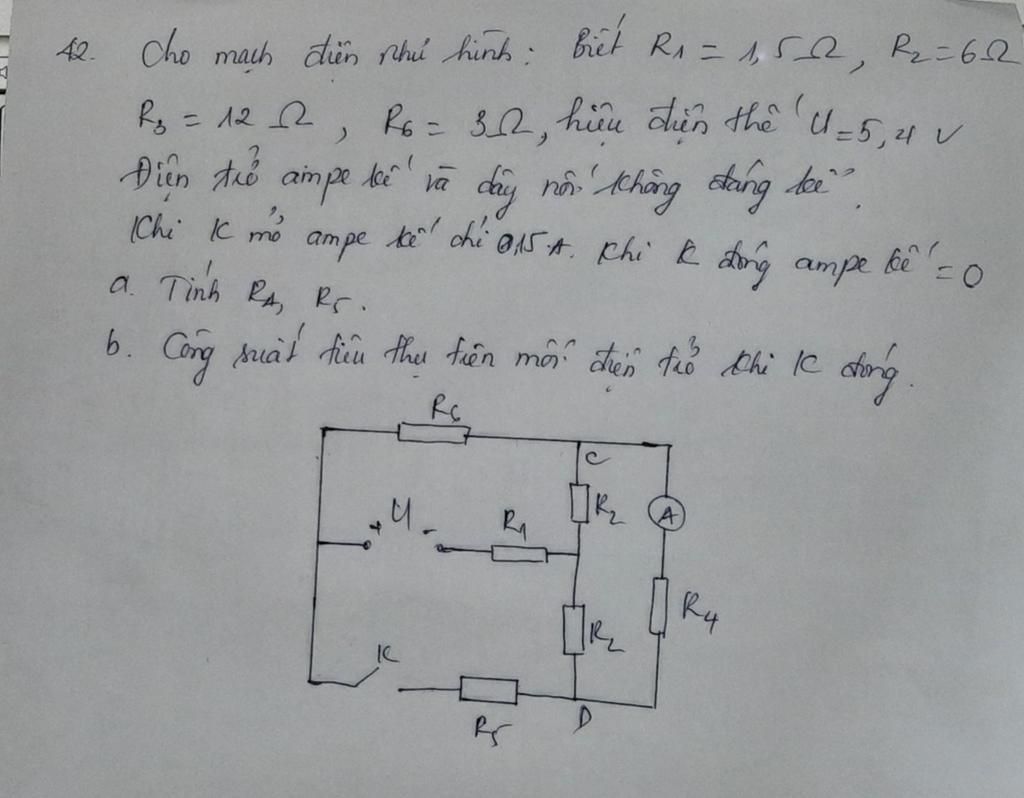 42. Cho mạch điện như hình: Biết R1 = 1,5Ω, R2=6Ω
R3 = 12 Ω, R6 = 3Ω, hiệu điện thế U=5,4 V
Điện trở ampe kế và dây nối không đáng kể.
Khi K mở ampe kế chỉ 0,15A. Khi K đóng ampe kế = 0
a. Tính RA, R5.
b. Công suất tiêu thụ trên mỗi điện trở khi K đóng.
R6
C
+ U - R1 R2 A
R2 R4
K
R5 D